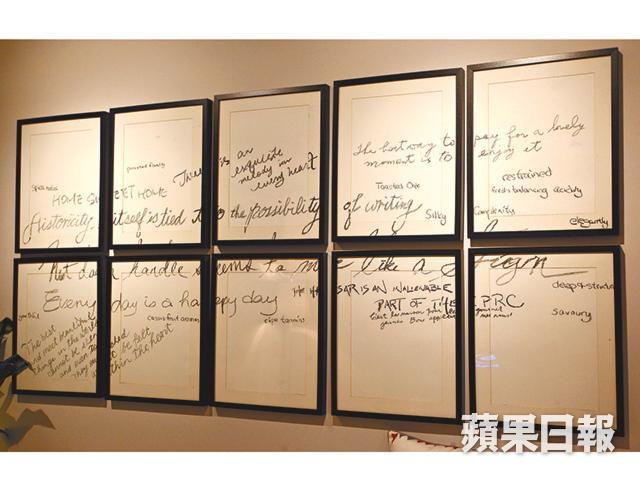 spicy notes
powerful fruity
HOME SWEET HOME
There is an
exquisite
melody in
every heart
The best way to pay for a lovely
moment is to enjoy it
Toasted Oak
restrained
fresh balancing acidity
Historicity itself is tied to the possibility of writing
Silky
Complexity
elegantly
That door handle seems to me like a sign
Every day is a happy day
SAR IS AN INALIENABLE
PART OF THE PRC
deep structure
Cassis fruit aromas
ripe tannins
savoury
The best
and most beautiful
things in the world
cannot be seen
be felt
within the heart
蘋果日報